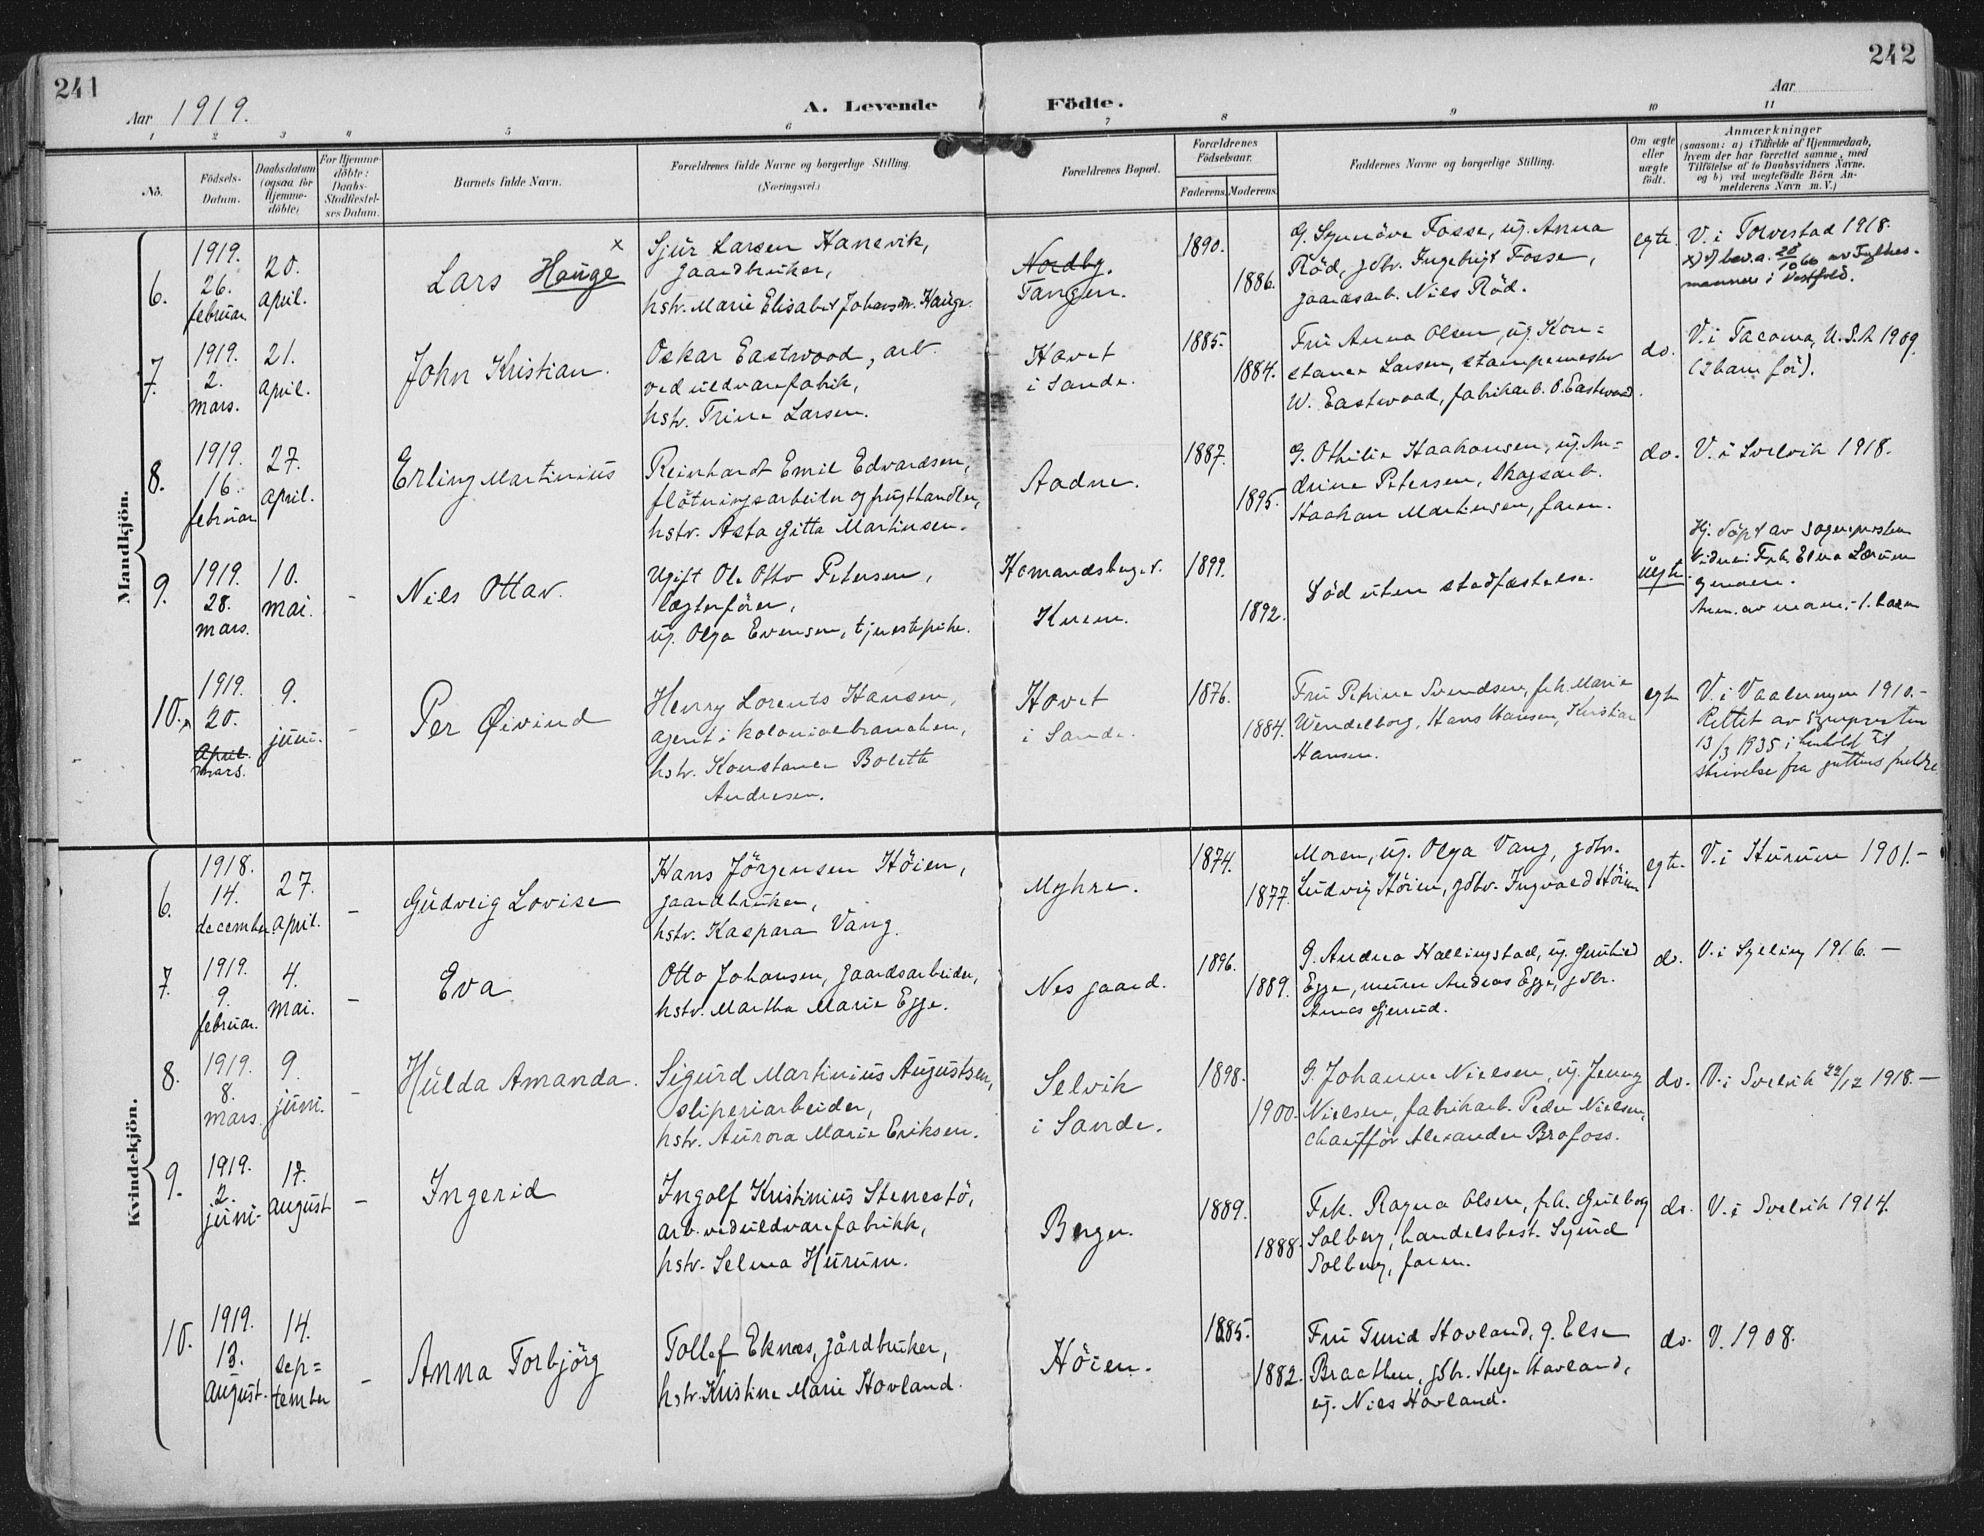 241
242
Aar 1919.
A. Levende Födte.
Aar
1 2 3 4 5 6 7 8 9 10 11
No.
Födsels-
Datum.
Daabsdatum
(ogsaa for
Hjemme-
döbte)
For Hjemme-
döbte:
Daabs-
Stadfæstel-
ses Datum.
Barnets fulde Navn.
Forældrenes fulde Navne og borgerlige Stilling.
(Næringsvei.)
Forældrenes Bopæl.
Forældrenes
Födselsaar.
Faderens. Moderens.
Faddernes Navne og borgerlige Stilling.
Om ægte
eller
uægte
födt.
Anmærkninger
(saasom: a) i Tilfælde af Hjemmedaab,
hvem der har forrettet samme, med
Tilföielse af to Daabsvidners Navne.
og b) ved uegtefödte Börn An-
melderens Navn m. V.)
Mandkjön.
6.
1919.
26.
februar.
20.
april.
Lars Hauge x
Sjur Larsen Hanevik,
gaardbruker,
hstr. Marie Elisabet Johansdtr. Hauge.
Nordby.
Tangen.
1890.
1886.
G. Synnöve Fosse, ug. Anna
Röd, gdbr. Ingebrigt Fosse,
gaardsarb. Niels Röd.
egte.
V. i Torvestad 1918.
x) bev. a. 28/10 60 av Fylkes-
mannen i Vestfold.
7.
1919.
2.
mars.
21.
april.
John Kristian.
Oskar Eastwood, arb.
ved uldvarefabrik,
hstr. Trine Larsen.
Havet
i Sande.
1885.
1884.
Fru Anna Olsen, ug. Kon=
stance Larsen, stampemester
W. Eastwood, fabrikarb. O. Eastwood.
do.
V. i Tacoma, U.S.A 1909.
(2 barn för).
8.
1919.
16.
februar
27.
april.
Erling Martinius
Reinhardt Emil Edvardsen,
flötningsarbeider og frugthandler,
hstr. Asta Gitta Martinsen.
Aadne.
1887.
1895.
G. Othilie Haakonsen, ug. An=
drine Petersen, skogsarb.
Haakon Martinsen, faren.
do.
V. i Svelvik 1918.
9.
1919.
28.
mars.
10.
mai.
-
Nils Ottar.
Ugift Ole Otto Petersen,
lægterförer,
ug. Olga Evensen, tjenestepike.
Komandsberget.
Knem.
1899.
1892.
Död uten stadfæstelse.
uegte
Hj. döpt av sognepresten
Vidner: Frk. Elna Lærum
Anm. av moren. - 1. barn
10. x
1919.
20.
April.
mars.
9.
juni.
-
Per Øivind
Henry Lorents Hansen,
agent i kolonialbranchen,
hstr. Konstance Bolette
Andresen.
Hovet
i Sande.
1876.
1884.
Fru Petrine Svendsen, frk. Marie
Wendelborg, Hans Hansen, Kristian
Hansen.
egte
V. i Vaalerengen 1910.-
Rettet av Sognepresten
13/3 1935 i henhold til
skrivelse fra guttens foreldre
Kvindekjön.
6.
1918.
14.
december.
27.
april.
-
Gudveig Lovise
Hans Jörgensen Höien,
gaardbruker,
hstr. Kaspara Vang.
Myhre.
1874.
1877.
Moren, ug. Olga Vang, gdbr.
Ludvig Höien, gdbr. Ingvald Höien
egte.
V. i Hurum 1901.-
7.
1919.
9.
februar.
4.
mai.
-
Eva
Otto Johansen, gaardsarbeider,
hstr. Martha Marie Egge.
Nes gaard.
1896.
1889.
G. Andrea Hallingstad, ug. Gunhild
Egge, murer Andreas Egge, gdbr.
do.
V. i Sylling 1916. -
8.
1919.
8.
mars.
9.
juni.
-
Hulda Amanda.
Sigurd Martinius Augustsen,
sliperiarbeider,
hstr. Aurora Marie Eriksen.
Selvik
i Sande.
1898.
1900.
G. Johanne Nielsen, ug. Jenny
Nielsen, fabrikarb. Peder Nielsen,
chaufför Alexander Brofoss.
do.
V. i Svelvik 22/12 1918.-
9.
1919.
2.
juni.
17.
august
-
Ingerid
Ingolf Kristinius Stenestö,
arb. ved uldvarefabrikk,
hstr. Selma Hurum.
Berger.
1889.
1888.
Frk. Ragna Olsen, frk. Gulborg
Solberg, handelsbest. Sigurd
Solberg, faren.
do.
V. i Svelvik 1914.
10.
1919.
13.
august.
14.
sep=
tember
-
Anna Torbjörg
Tollef Eknæs, gårdbruker,
hstr. Kristine Marie Hovland.
Höien.
1885.
1882.
Fru Turid Hovland, g. Else
Braathen, gdbr. Helge Hovland,
ug. Niels Hovland.
do.
V. 1908.